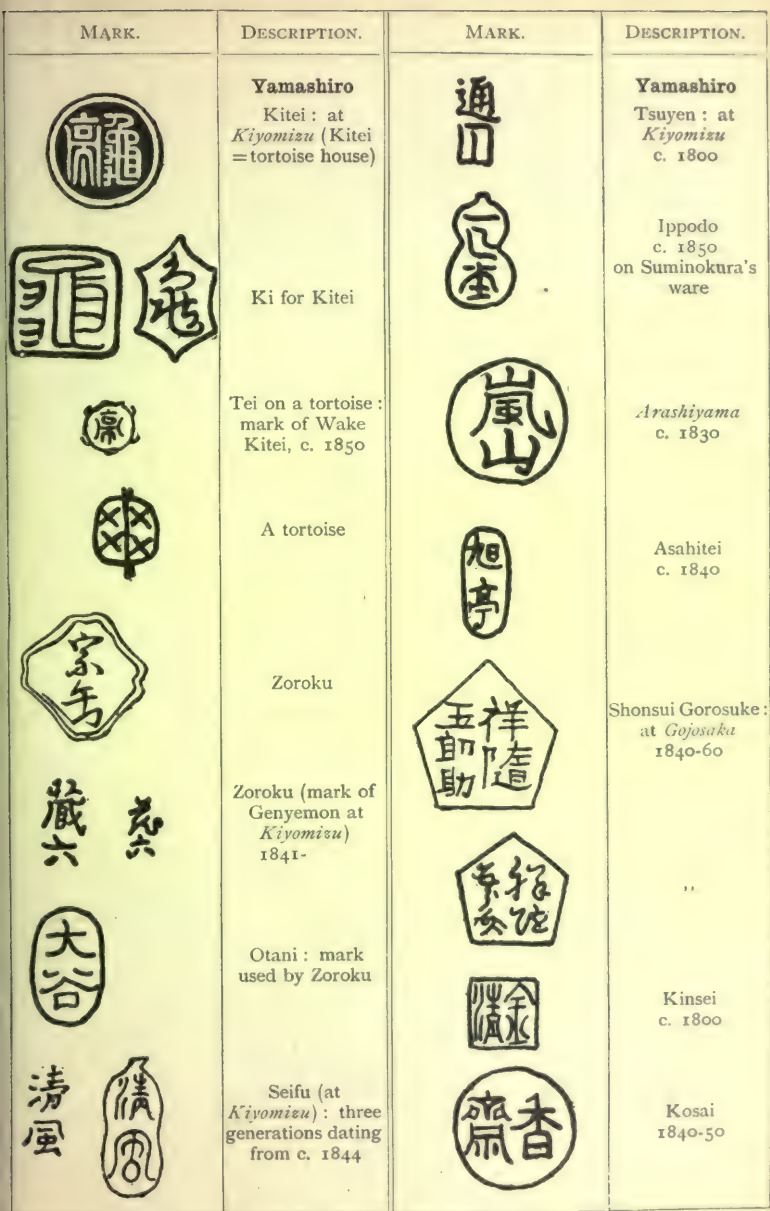 MARK.
DESCRIPTION.
MARK.
DESCRIPTION.
Yamashiro
Kitei : at
Kiyomizu (Kitei
=tortoise house)
龜
亭
Ki for Kitei
Tei on a tortoise :
mark of Wake
Kitei, c. 1850
亭
A tortoise
Zoroku
Zoroku (mark of
Genyemon at
Kiyomizu)
1841-
藏
六
六
Otani : mark
used by Zoroku
大
谷
Seifu (at
Kiyomizu) : three
generations dating
from c. 1844
清
風
清
風
Yamashiro
Tsuyen : at
Kiyomizu
c. 1800
通
Ippodo
c. 1850
on Suminokura's
ware
堂
Arashiyama
c. 1830
嵐
山
Asahitei
c. 1840
旭
亭
Shonsui Gorosuke :
at Gojosaka
1840-60
祥
五
助
,,
Kinsei
c. 1800
金
清
Kosai
1840-50
香
齋